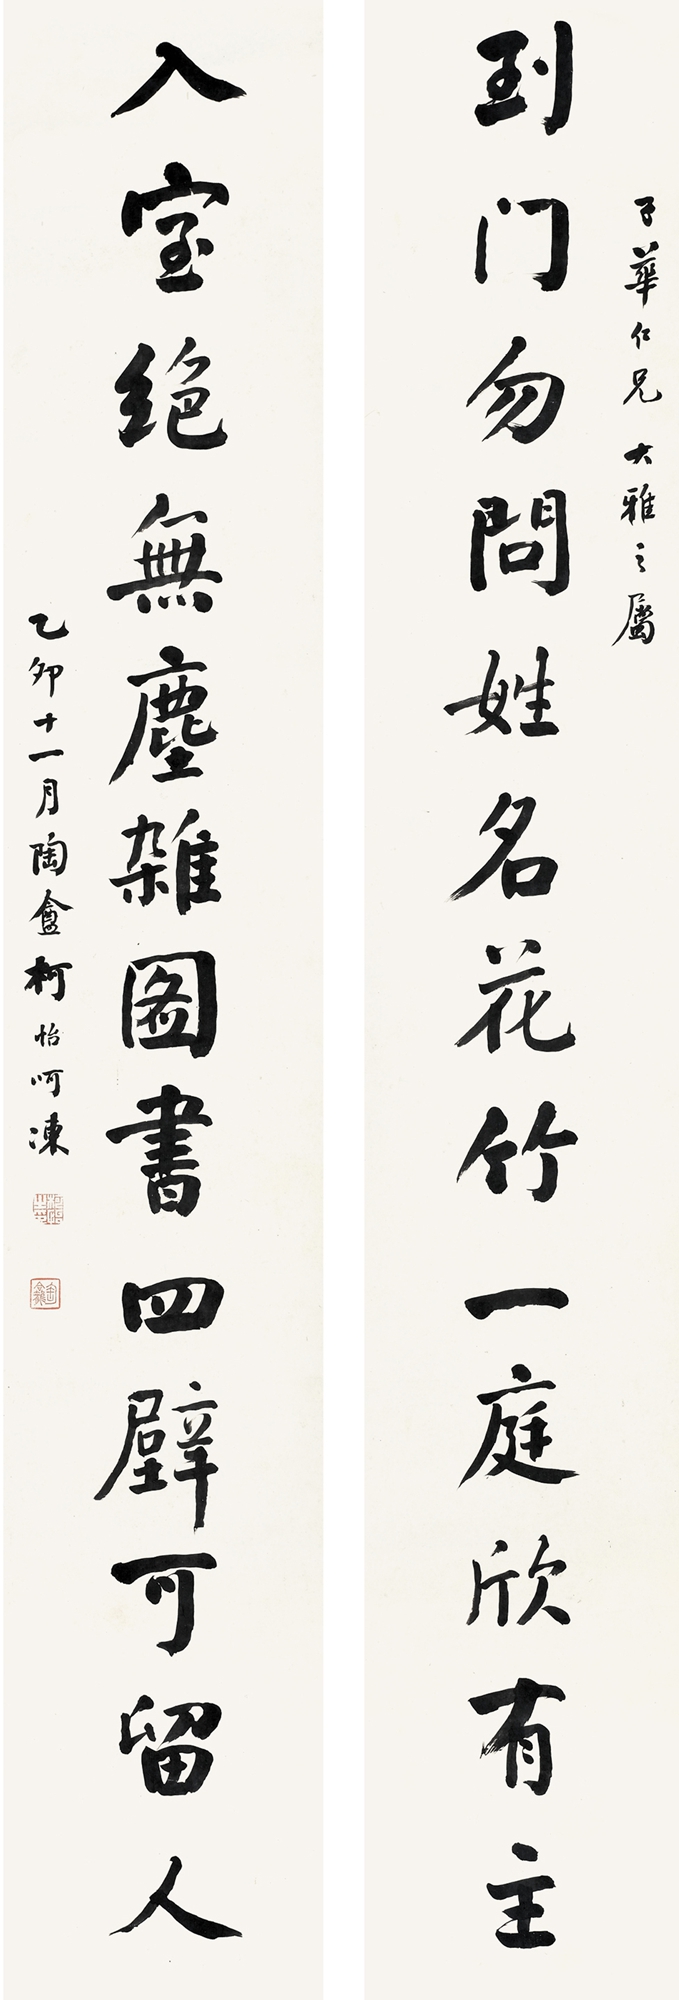 子華仁兄大雅之屬
到门勿問姓名花竹一庭欣有主
入室绝無塵雜图書四壁可留人
乙卯十一月陶盦柯怡呵凍